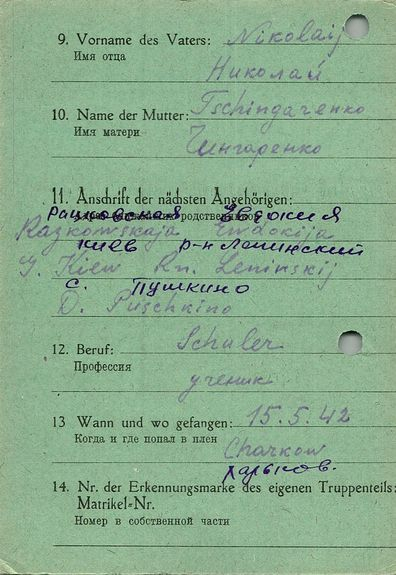 9. Vorname des Vaters: Nikolaij
Имя отца
Николай
10. Name der Mutter: Tschingarenko
Имя матери
Чингаренко
11. Anschrift der nächsten Angehörigen:
рацковская Евдокия
родственников
Razkowskaja Ewdokija
киев р-н Ленинский
G. Kiew Rn. Leninskij
с. Пушкино
D. Puschkino
12. Beruf: Schüler
Профессия
ученик
13 Wann und wo gefangen: 15.5.42
Когда и где попал в плен
Charkow
Харьков.
14. Nr. der Erkennungsmarke des eigenen Truppenteils:
Matrikel=Nr.
Номер в собственной части